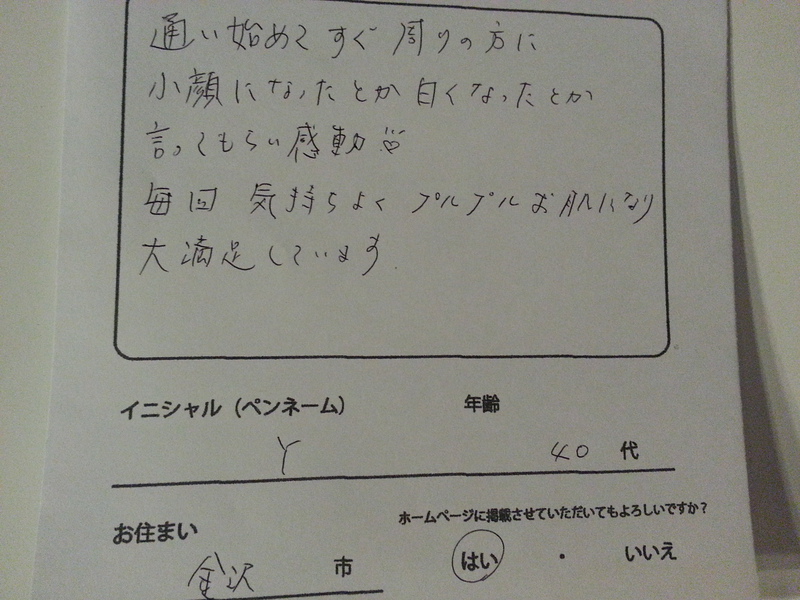 通い始めてすぐ周りの方に
小顔になったとか白くなったとか
言ってもらい感動♡
毎回 気持ちよくプルプルお肌になり
大満足しています。
イニシャル（ペンネーム） 年齢
Y 40 代
お住まい ホームページに掲載させていただいてもよろしいですか？
金沢 市 はい ・ いいえ